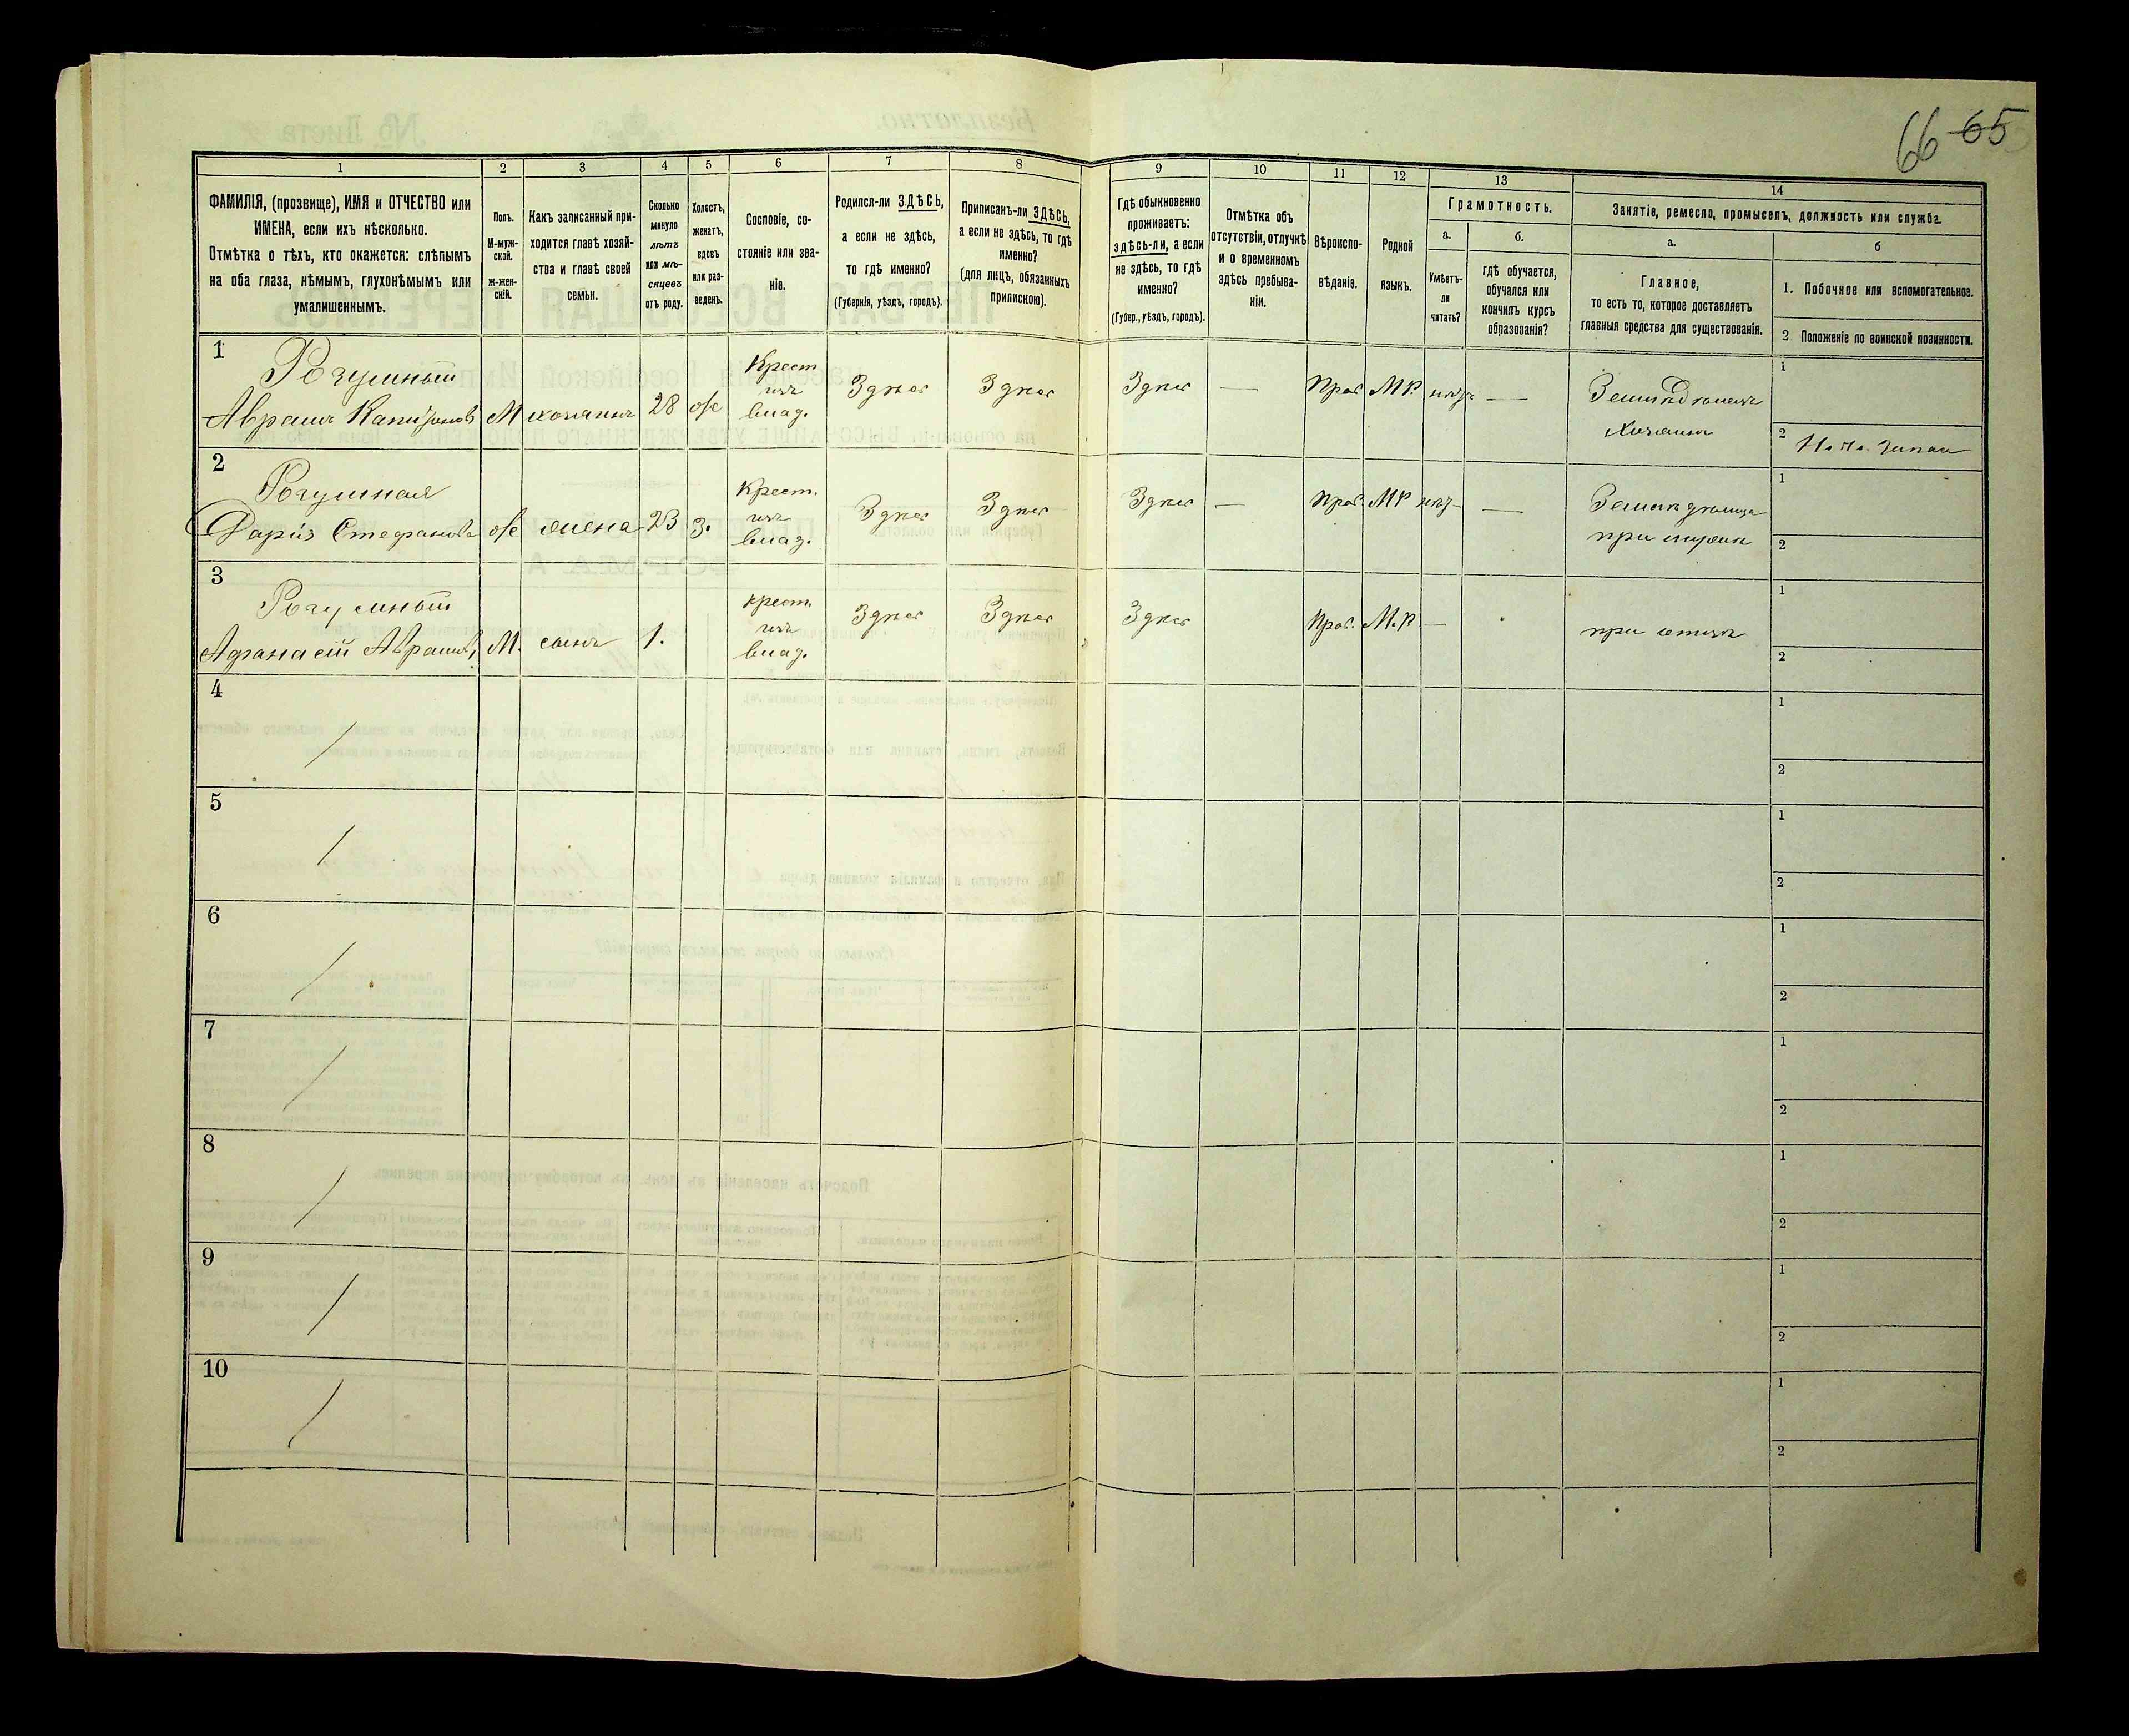 66 65
1
2
3
4
5
6
7
8
9
10
11
12
13
14
ФАМИЛІЯ, (прозвище), ИМЯ и ОТЧЕСТВО или
ИМЕНА, если ихъ нѣсколько.
Отмѣтка о тѣхъ, кто окажется: слѣпымъ
на оба глаза, нѣмымъ, глухонѣмымъ или
умалишеннымъ.
Полъ.
М-муж-
ской.
ж-жен-
скій.
Какъ записанный при-
ходится главѣ хозяй-
ства и главѣ своей
семьи.
Сколько
минуло
лѣтъ
или мѣ-
сяцевъ
отъ роду.
Холостъ,
женатъ,
вдовъ
или раз-
веденъ.
Сословіе, со-
стояніе или зва-
ніе.
Родился-ли ЗДѢСЬ,
а если не здѣсь,
то гдѣ именно?
(Губернія, уѣздъ, городъ).
Приписанъ-ли ЗДѢСЬ,
а если не здѣсь, то гдѣ
именно?
(для лицъ, обязанныхъ
припискою).
Гдѣ обыкновенно
проживаетъ:
здѣсь-ли, а если
не здѣсь, то гдѣ
именно?
(Губер., уѣздъ, городъ).
Отмѣтка объ
отсутствіи, отлучкѣ
и о временномъ
здѣсь пребыва-
ніи.
Вѣроиспо-
вѣданіе.
Родной
языкъ.
Грамотность.
а.
б.
Умѣетъ-
ли
читать?
гдѣ обучается,
обучался или
кончилъ курсъ
образованія?
Занятіе, ремесло, промыселъ, должность или служба.
а.
б
Главное,
то есть то, которое доставляетъ
главныя средства для существованія.
1. Побочное или вспомогательное.
2 Положеніе по воинской повинности.
1
Розумный
Аврамъ М хозяинъ 28 ж
Крест
изъ
влад.
Здѣсь Здѣсь Здѣсь — Прав МР. —
Хозяинъ
1
2
2
Розумная
Дарія Стефанова ж жена 23 з.
Крест.
изъ
влад.
Здѣсь Здѣсь Здѣсь — Прав МР —
при мужѣ
1
2
3
Розумный
Афанасій Аврамов, М. сынъ 1.
крест.
изъ
влад.
Здѣсь Здѣсь Здѣсь Прав. М.Р —
при отцѣ
1
2
4
1
2
5
1
2
6
1
2
7
1
2
8
1
2
9
1
2
10
1
2